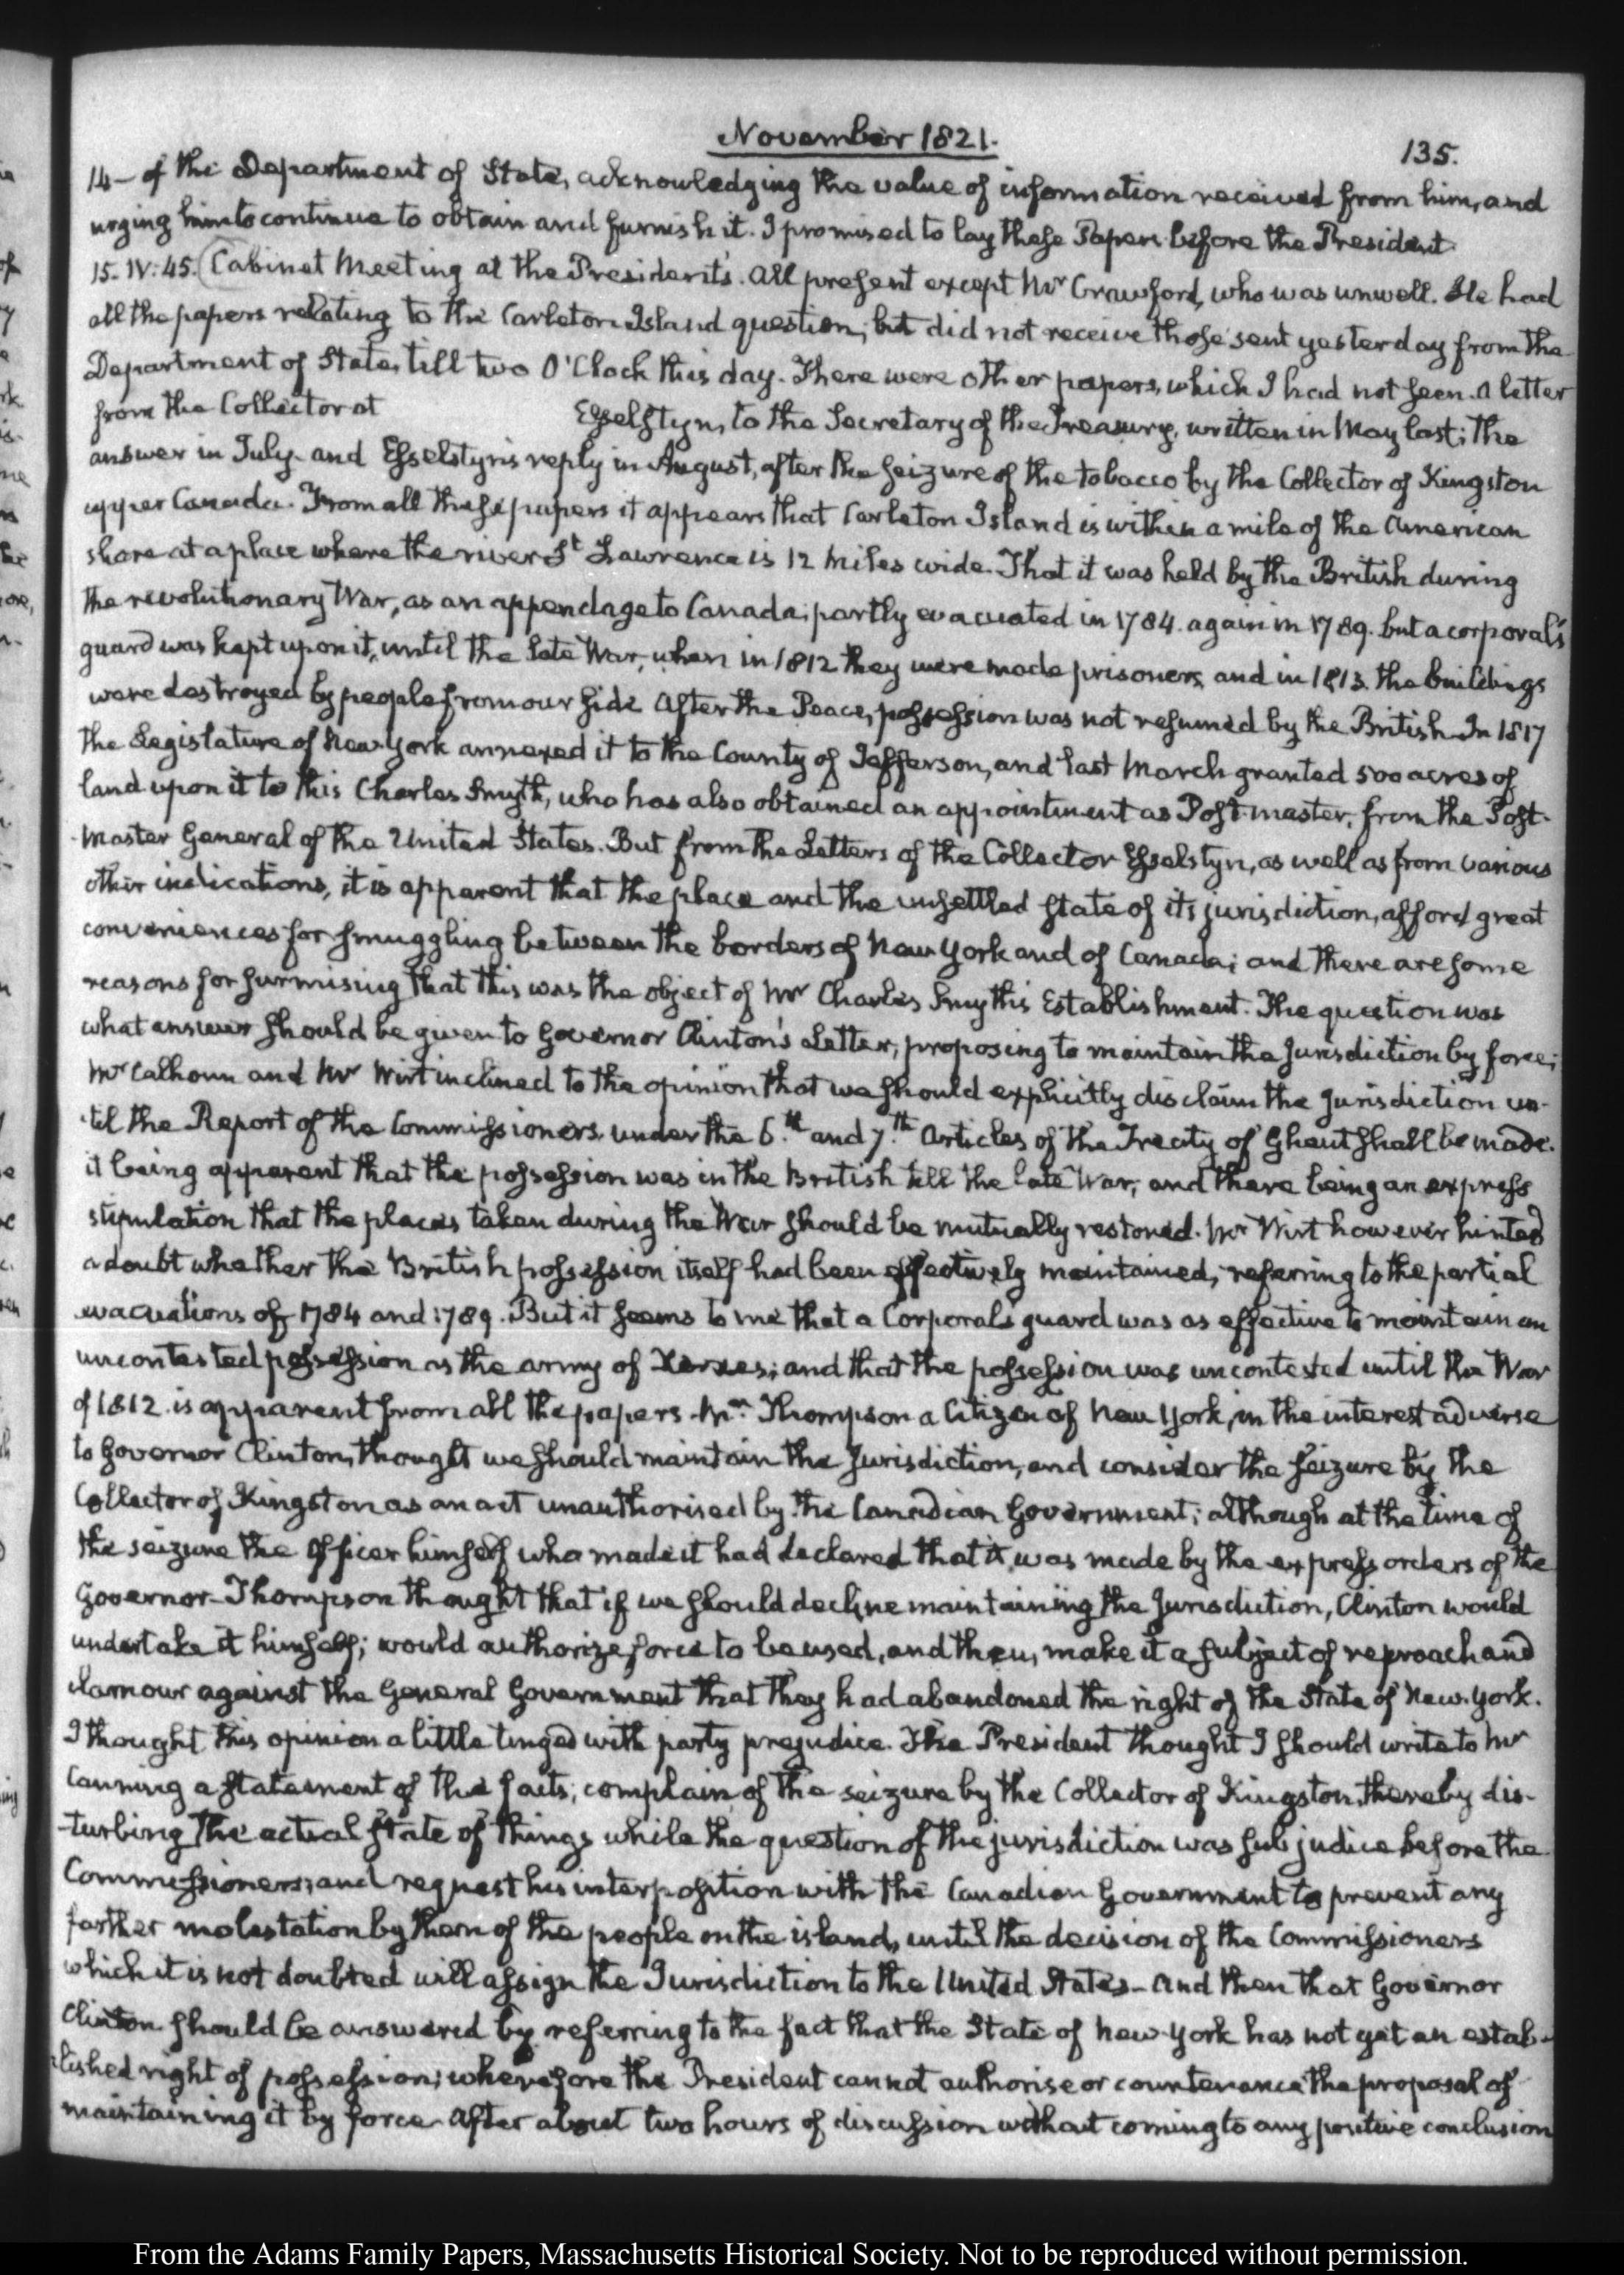 November 1821.
135.
14 - of the Department of State, acknowledging the value of information received from him, and
urging him to continue to obtain and furnish it. I promised to lay these Papers before the President.
15. IV:45. Cabinet Meeting at the President's. All present except Mr Crawford, who was unwell. He had
all the papers relating to the Carleton Island question; but did not receive those sent yesterday from the
Department of State, till two O'Clock this day. There were other papers, which I had not seen. A letter
from the Collector at Esselstyn, to the Secretary of the Treasury, written in May last; the
answer in July and Esselstyn's reply in August, after the seizure of the tobacco by the Collector of Kingston
upper Canada. From all these papers it appears that Carleton Island is within a mile of the American
shore at a place where the river St Lawrence is 12 Miles wide. That it was held by the British during
the revolutionary War, as an appendage to Canada; partly evacuated in 1784. again in 1789. but a corporal's
guard was kept upon it, until the late War, when in 1812 they were made prisoners, and in 1813. the buildings
were destroyed by people from our side After the Peace, possession was not resumed by the British In 1817
the Legislature of New York annexed it to the County of Jefferson, and last March granted 500 acres of
land upon it to this Charles Smyth, who has also obtained an appointment as Post-master, from the Post-
Master General of the United States. But from the Letters of the Collector Esselstyn, as well as from various
other indications, it is apparent that the place and the unsettled state of its jurisdiction, afford great
conveniences for smuggling between the borders of New York and of Canada; and there are some
reasons for surmising that this was the object of Mr Charles Smyth's Establishment. The question was
what answer should be given to Governor Clinton's Letter, proposing to maintain the Jurisdiction by force;
Mr Calhoun and Mr Wirt inclined to the opinion that we should explicitly disclaim the Jurisdiction un-
til the Report of the Commissioners, under the 6.th and 7.th Articles of the Treaty of Ghent shall be made.
it being apparent that the possession was in the British till the late War, and there being an express
stipulation that the places taken during the War should be mutually restored. Mr Wirt however hinted
a doubt whether the British possession itself had been effectively maintained, referring to the partial
evacuations of 1784 and 1789. But it seems to me that a Corporal's guard was as effective to maintain an
uncontested possession as the army of Xerxes; and that the possession was uncontested until the War
of 1812. is apparent from all the papers. Mr. Thompson a Citizen of New York, in the interest adverse
to Governor Clinton, thought we should maintain the Jurisdiction, and consider the seizure by the
Collector of Kingston as an act unauthorised by the Canadian Government; although at the time of
the seizure the Officer himself who made it had declared that it was made by the express orders of the
Governor - Thompson thought that if we should decline maintaining the Jurisdiction, Clinton would
undertake it himself; would authorize force to be used, and then, make it a subject of reproach and
clamour against the General Government that they had abandoned the right of the State of New York.
I thought this opinion a little tinged with party prejudice. The President thought I should write to Mr
Canning a statement of the facts; complain of the seizure by the Collector of Kingston, thereby dis-
-turbing the actual state of things while the question of the jurisdiction was sub judice before the
Commissioners; and request his interposition with the Canadian Government to prevent any
farther molestation by them of the people on the island, until the decision of the Commissioners
which it is not doubted will assign the Jurisdiction to the United States - And then that Governor
Clinton should be answered by referring to the fact that the State of New York has not yet an estab-
lished right of possession; wherefore the President cannot authorise or countenance the proposal of
maintaining it by force. After about two hours of discussion without coming to any positive conclusion
From the Adams Family Papers, Massachusetts Historical Society. Not to be reproduced without permission.